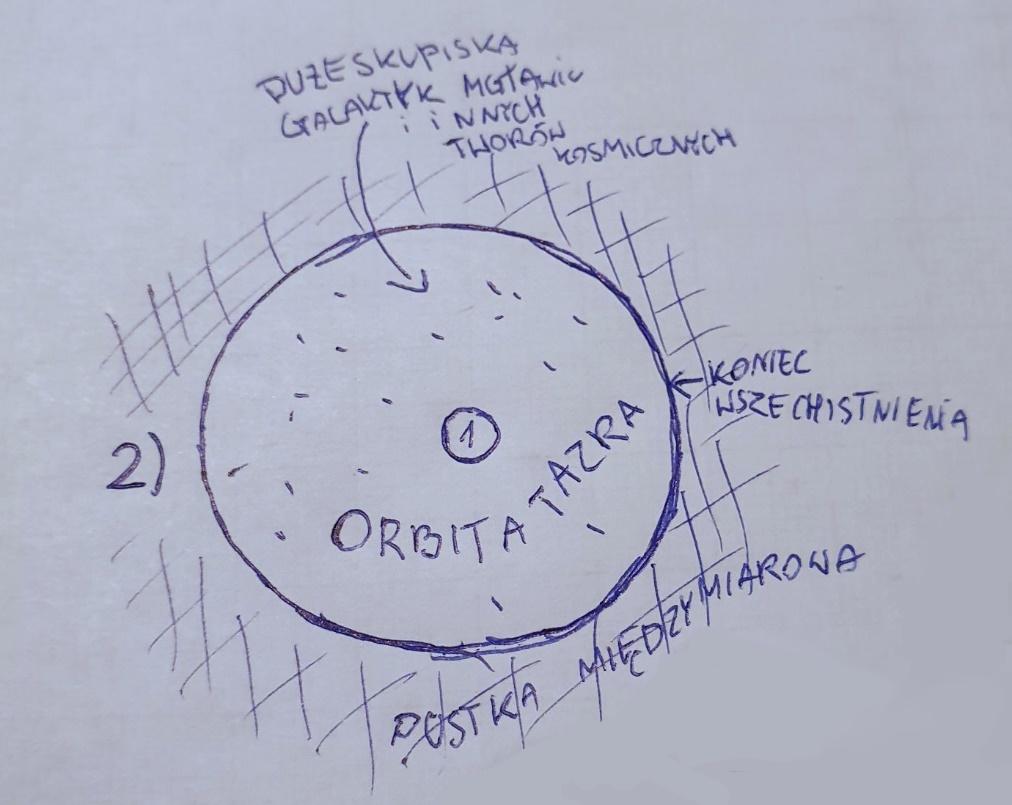 DUŻE SKUPISKA
GALAKTYK MGŁAWIC
i iNNYCH
TWORÓW
KOSMICZNYCH
KONIEC
WSZECHISTNIENIA
2)
1
ORBITA TAZRA
PUSTKA MIĘDZYMIAROWA